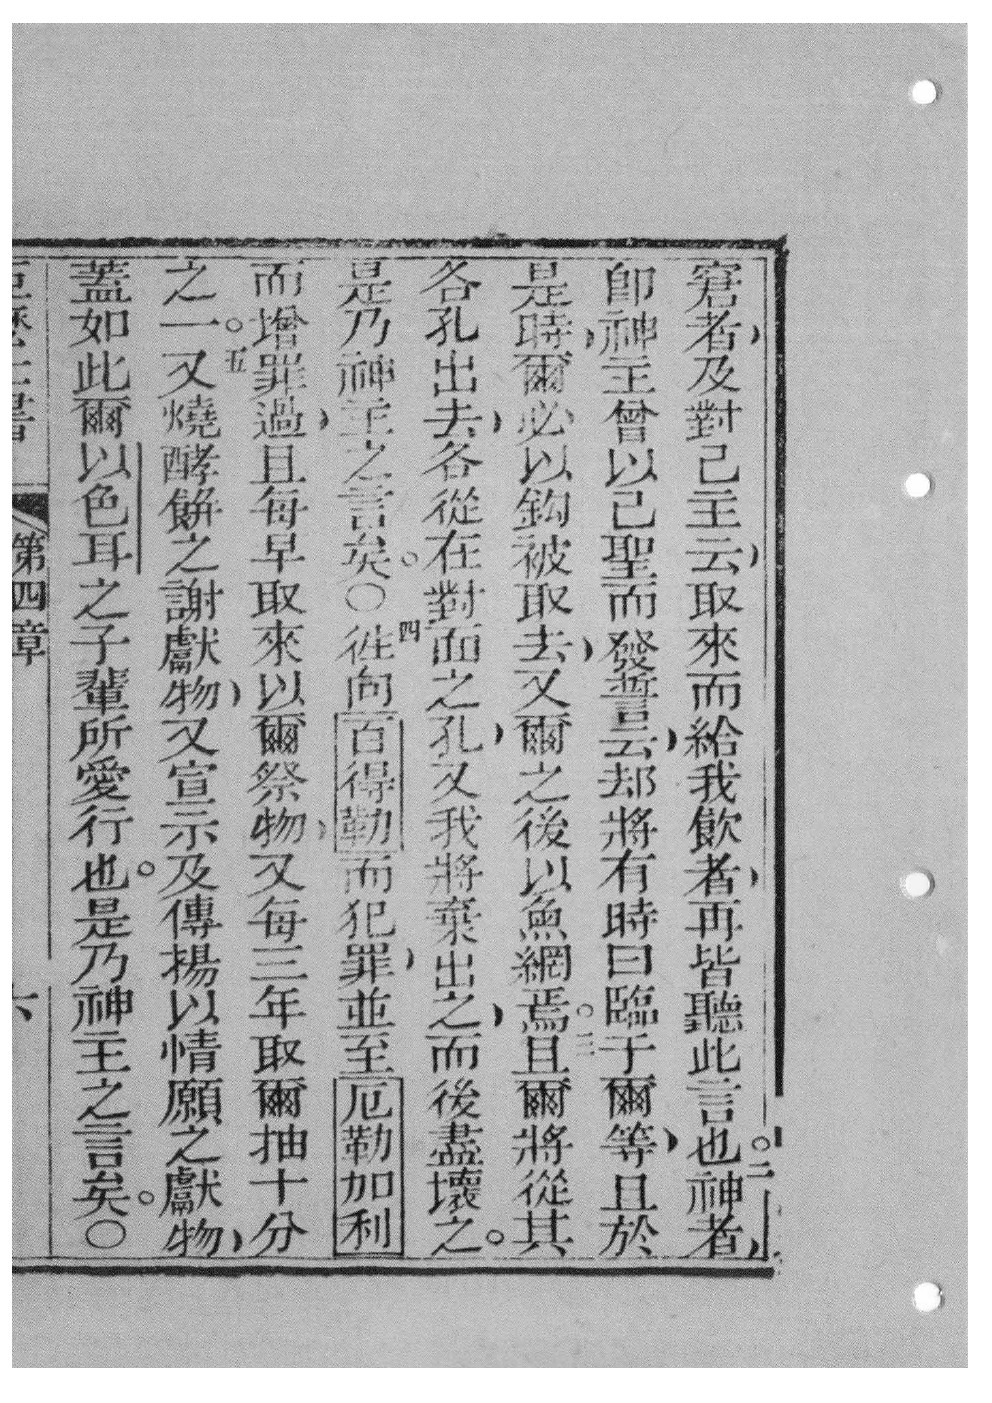 窘者及對己主云取來而給我飲者再皆聽此言也○二神者
卽神主曾以己聖而發誓云却將有時曰臨于爾等且於
是時爾必以鈎被取去又爾之後以魚網焉○三且爾將從其
各孔出去各從在對面之孔又我將棄出之而後盡壞之○
是乃神主之言矣○〇四徃向百得勒而犯罪並至厄勒加利
而增罪過且每早取來以爾祭物又每三年取爾抽十分
之一○五又燒酵餅之謝獻物又宣示及傳揚以情願之獻物
蓋如此爾以色耳之子輩所愛行也○是乃神主之言矣○〇
第四章 六